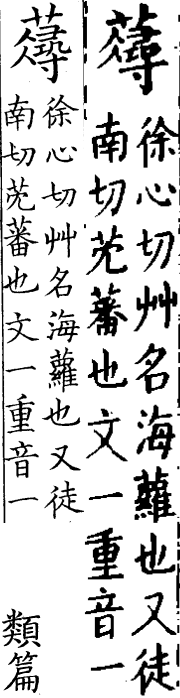 徐心切艸名海蘿也又徒
南切芫蕃也文一重音一
徐心切艸名海蘿也又徒
南切芫蕃也文一重音一
類篇